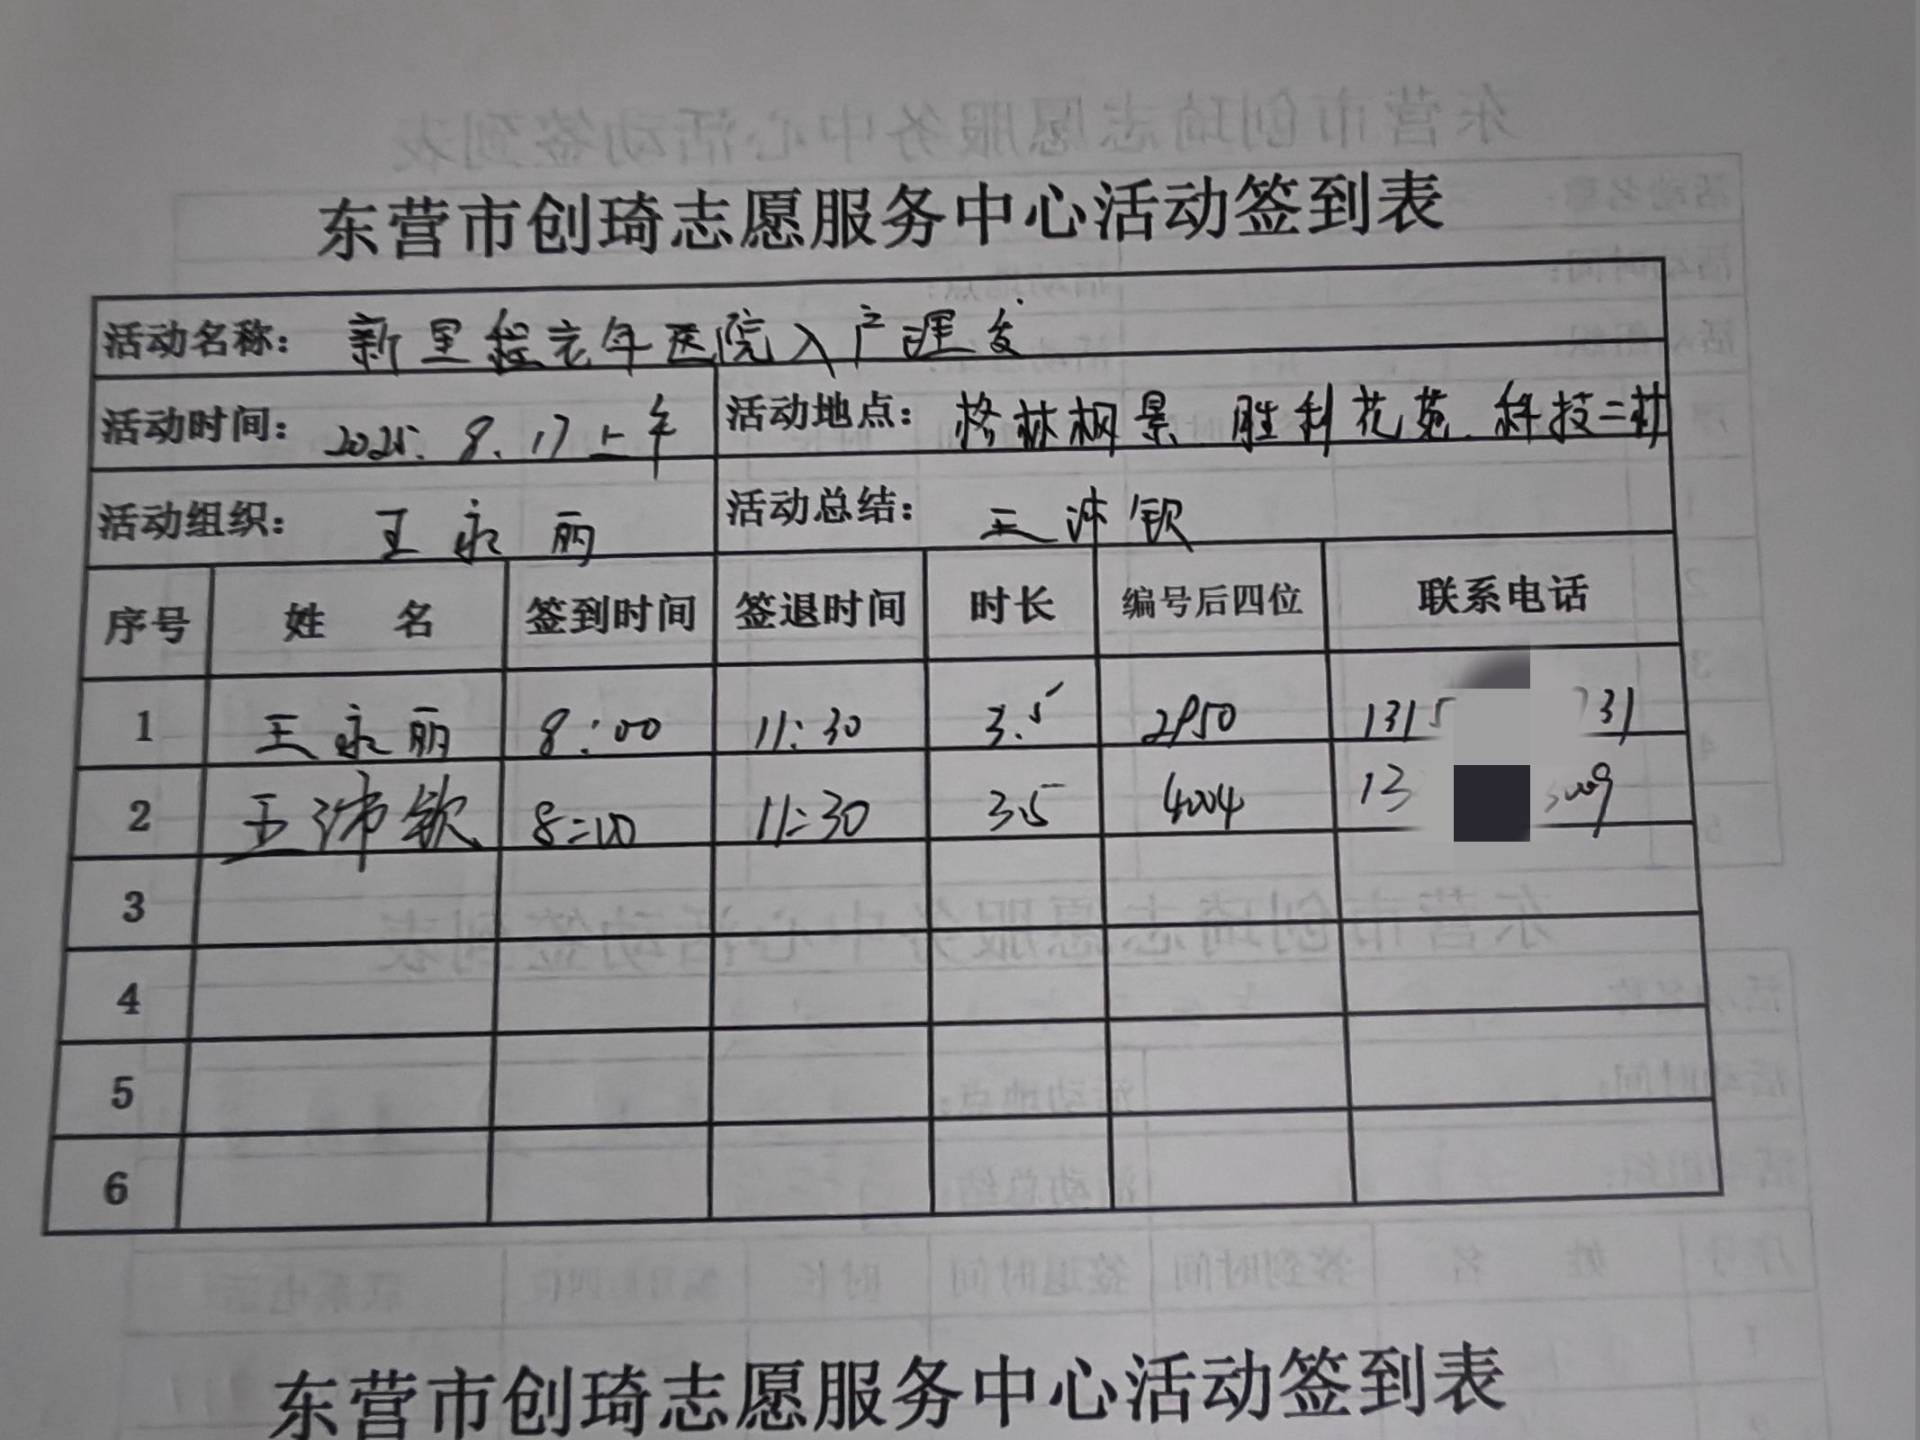 东营市创琦志愿服务中心活动签到表
活动名称： 新里程老年医院入户理发
活动时间： 2025.8.17上午 活动地点： 格林枫景 胜利花苑 科技二村
活动组织： 王永丽 活动总结： 王沛钦
序号 姓 名 签到时间 签退时间 时长 编号后四位 联系电话
1 王永丽 8:00 11:30 3.5 2950 1315 31
2 王沛钦 8:00 11:30 3.5 4004 13 3009
3
4
5
6
东营市创琦志愿服务中心活动签到表